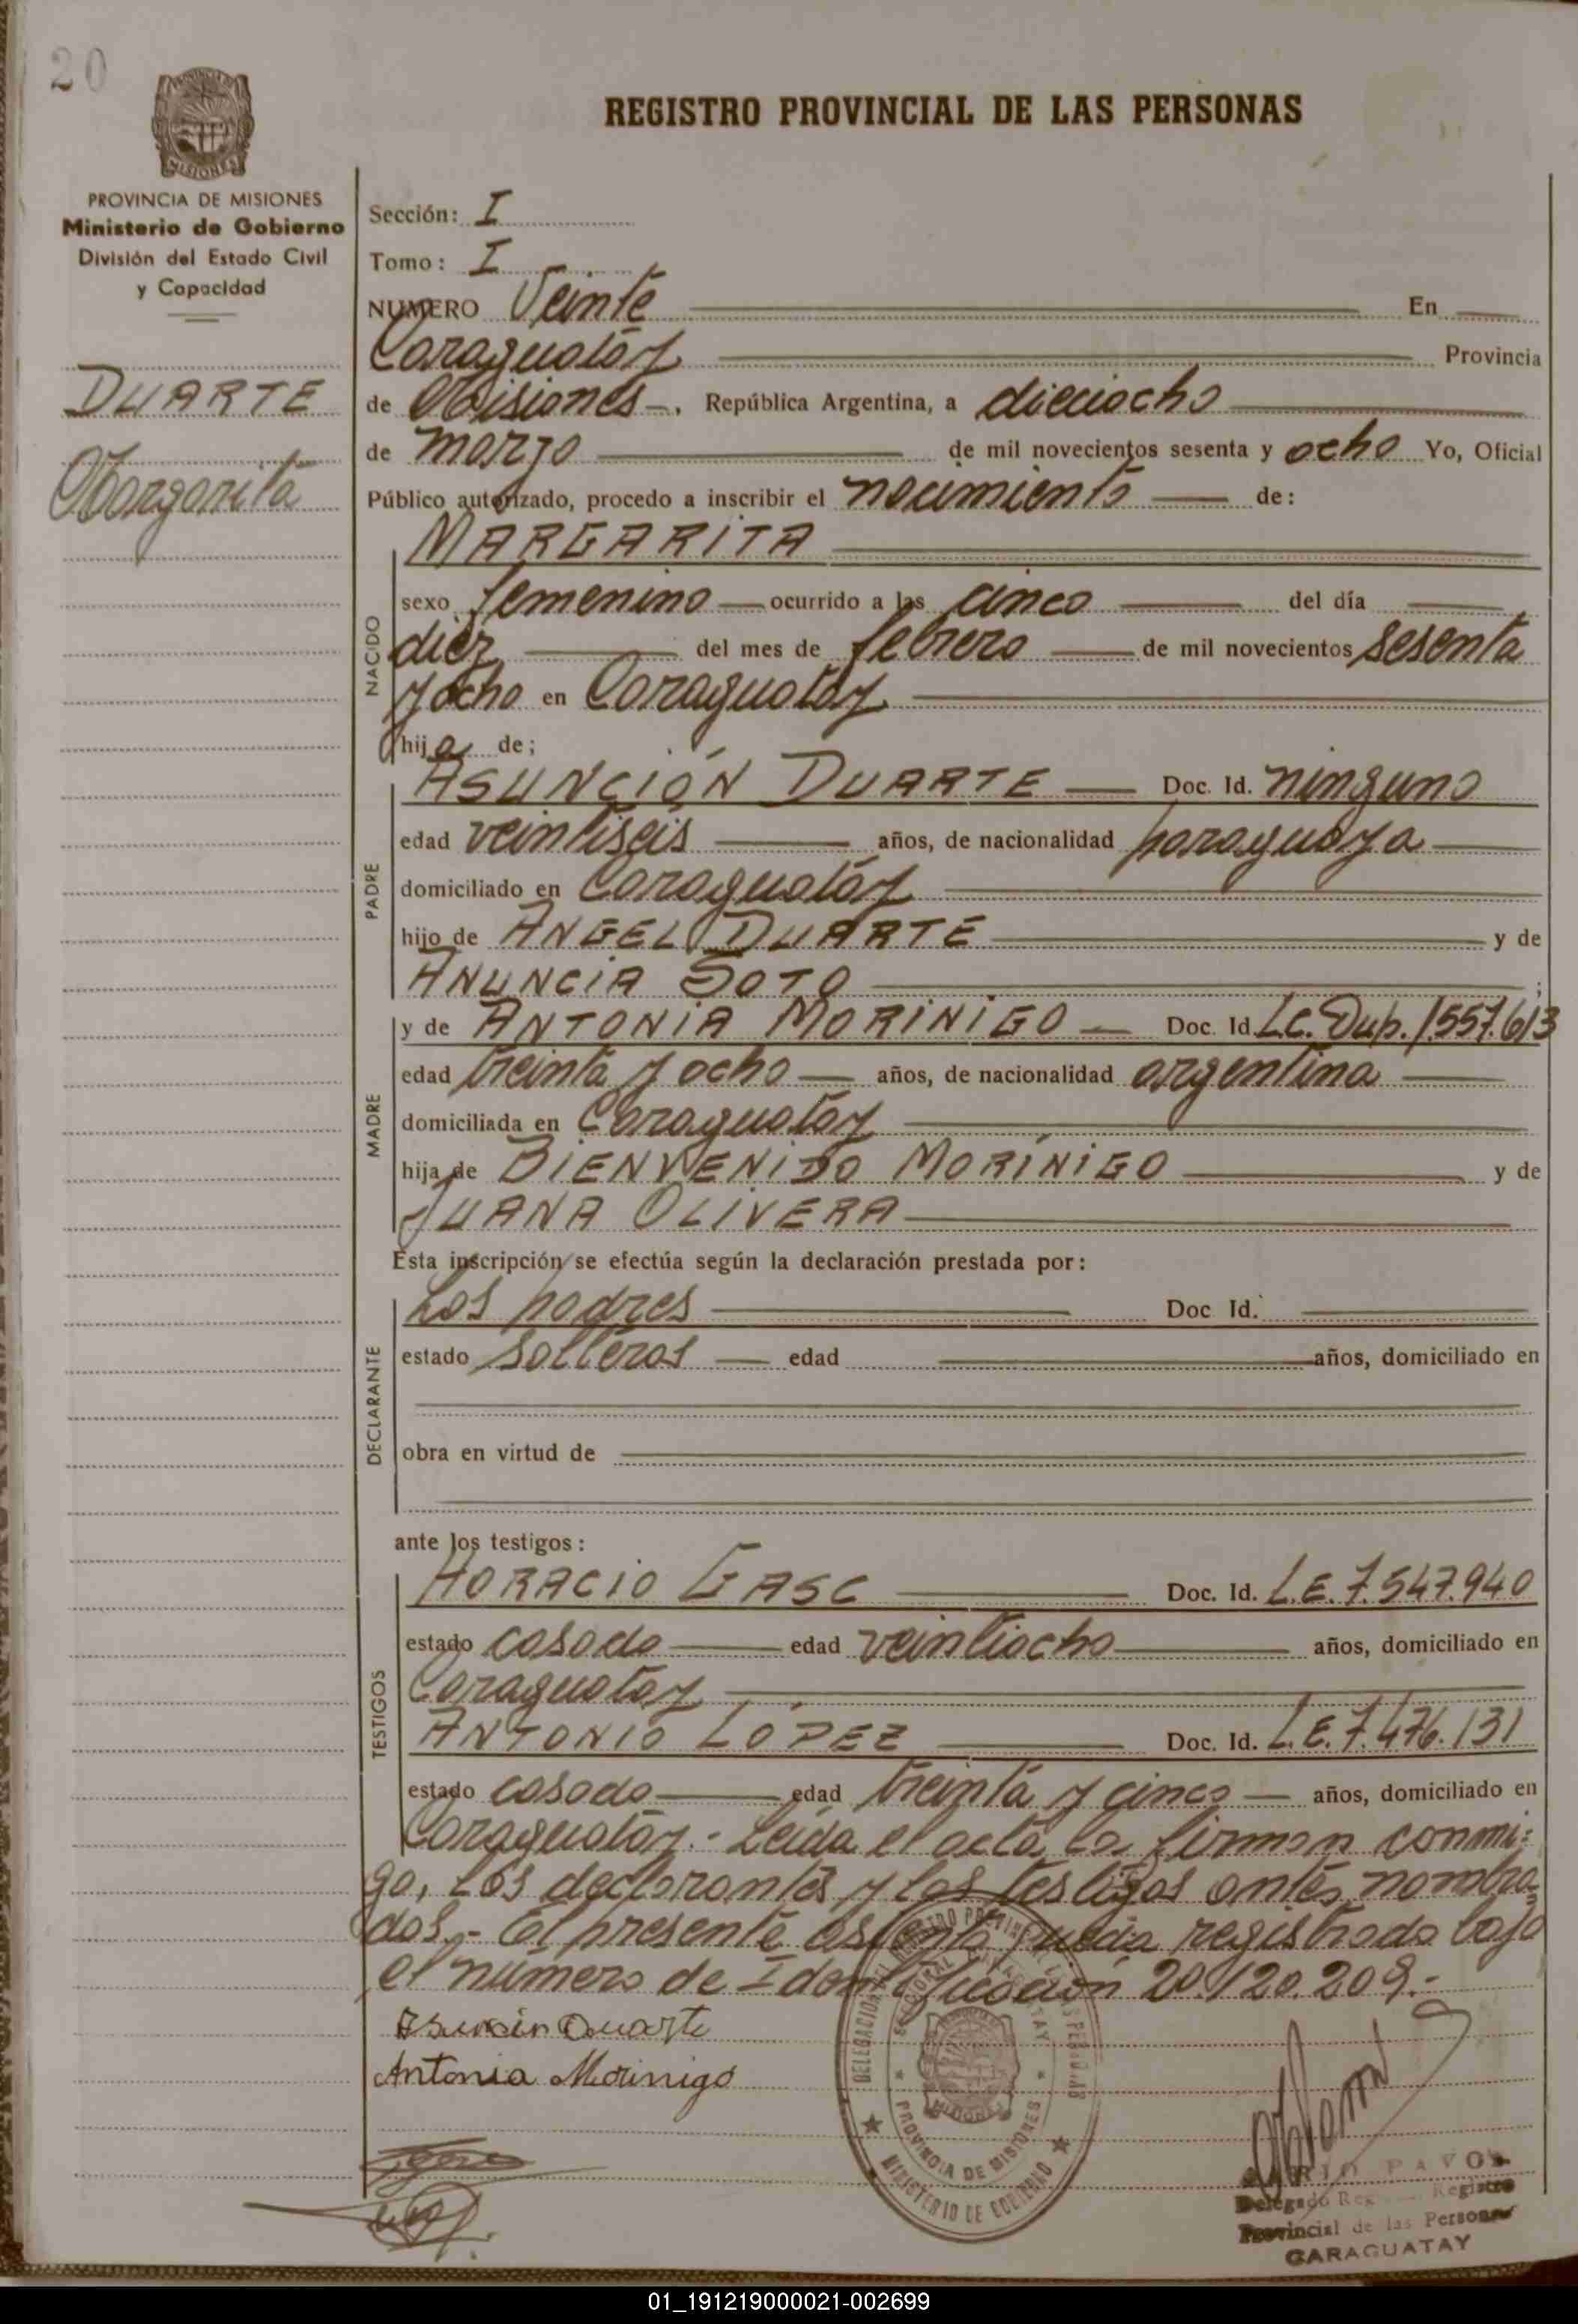 20
MISIONES
PROVINCIA DE MISIONES
Ministerio de Gobierno
División del Estado Civil
y Capacidad
DUARTE
Margarita
REGISTRO PROVINCIAL DE LAS PERSONAS
Sección: I
Tomo: I
NUMERO Veinte En
Caraguatáy Provincia
de Misiones -. República Argentina, a dieciocho
de marzo de mil novecientos sesenta y ocho Yo, Oficial
Público autorizado, procedo a inscribir el nacimiento de:
MARGARITA
NACIDO
sexo femenino ocurrido a las cinco del día
diez del mes de febrero de mil novecientos sesenta
y ocho en Caraguatáy
hija de;
PADRE
ASUNCIÓN DUARTE Doc. Id. ninguno
edad veintiseis años, de nacionalidad paraguaya
domiciliado en Caraguatáy
hijo de ANGEL DUARTE y de
ANUNCIA SOTO ;
MADRE
y de ANTONIA MORINIGO Doc. Id. L.C. Dup. 1.557.613
edad treinta y ocho años, de nacionalidad argentina
domiciliada en Caraguatáy
hija de BIENVENIDO MORÍNIGO y de
JUANA OLIVERA
Esta inscripción se efectúa según la declaración prestada por:
DECLARANTE
Los padres Doc Id.
estado solteros edad años, domiciliado en
obra en virtud de
ante los testigos:
TESTIGOS
HORACIO GASC Doc. Id. L.E. 7.547.940
estado casado edad veintiocho años, domiciliado en
Caraguatay
ANTONIO LÓPEZ Doc. Id. L.E. 7.476.131
estado casado edad treinta y cinco años, domiciliado en
Caraguatáy.- Leída el acta, la firman conmi-
go, los declarantes y los testigos antes nombra-
dos.- El presente asiento queda registrado bajo
el número de Identificación 20.120.209.-
Asunción Duarte
Antonia Morinigo
PROVINCIA DE MISIONES
MINISTERIO DE GOBIERNO
MARIO PAVON
Delegado Registro
Provincial de las Personas
CARAGUATAY
01_191219000021-002699